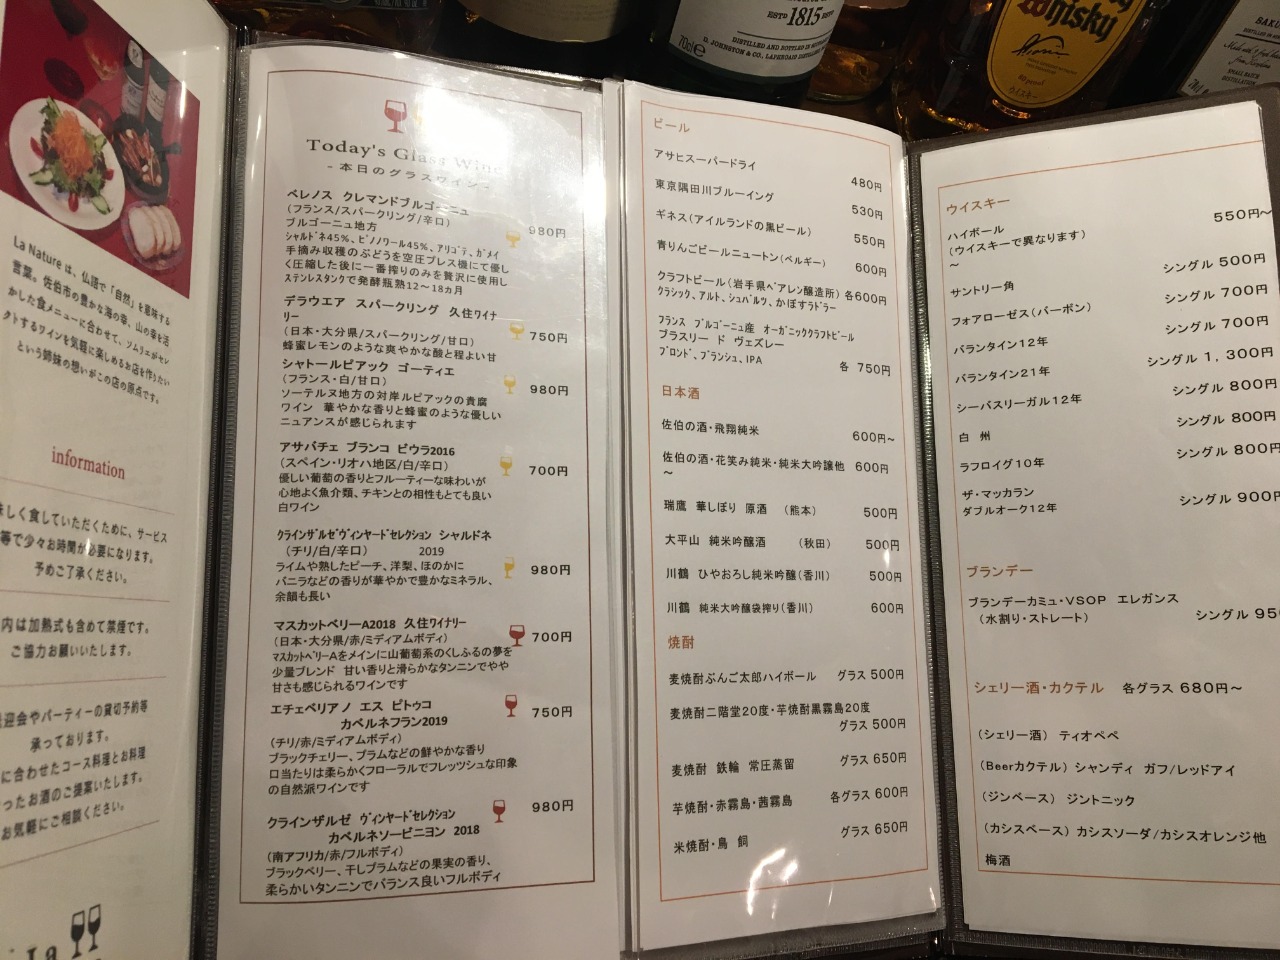 La Nature は、仏語で「自然」を意味する
言葉。佐伯市の豊かな海の幸、山の幸を活
かした食メニューに合わせて、ソムリエがセレ
クトするワインを気軽に楽しめるお店を作りたい
という姉妹の想いがこの店の原点です。
information
味しく食していただくために、サービス
等で少々お時間が必要になります。
予めご了承ください。
内は加熱式も含めて禁煙です。
ご協力お願いいたします。
迎会やパーティーの貸切予約等
承っております。
に合わせたコース料理とお料理
ったお酒のご提案いたします。
お気軽にご相談ください。
La
Today's Glass Wine
- 本日のグラスワイン -
ベレノス クレマンドブルゴーニュ
(フランス/スパークリング/辛口) 980円
ブルゴーニュ地方
シャルドネ45%、ピノノワール45%、アリゴテ、ガメイ
手摘み収穫のぶどうを空圧プレス機にて優し
く圧縮した後に一番搾りのみを贅沢に使用し
ステンレスタンクで発酵瓶熟12~18ヵ月
デラウエア スパークリング 久住ワイナ
リー 750円
(日本・大分県/スパークリング/甘口)
蜂蜜レモンのような爽やかな酸と程よい甘
シャトールピアック ゴーティエ
(フランス・白/甘口) 980円
ソーテルヌ地方の対岸ルピアックの貴腐
ワイン 華やかな香りと蜂蜜のような優しい
ニュアンスが感じられます
アサバチェ ブランコ ビウラ2016
(スペイン・リオハ地区/白/辛口) 700円
優しい葡萄の香りとフルーティーな味わいが
心地よく魚介類、チキンとの相性もとても良い
白ワイン
クラインザルゼヴィンヤードセレクション シャルドネ
(チリ/白/辛口) 2019
ライムや熟したピーチ、洋梨、ほのかに 980円
バニラなどの香りが華やかで豊かなミネラル、
余韻も長い
マスカットベリーA2018 久住ワイナリー
(日本・大分県/赤/ミディアムボディ) 700円
マスカットベリーAをメインに山葡萄系のくしふるの夢を
少量ブレンド 甘い香りと滑らかなタンニンでやや
甘さも感じられるワインです
エチェベリアノ エス ピトゥコ 750円
カベルネフラン2019
(チリ/赤/ミディアムボディ)
ブラックチェリー、プラムなどの鮮やかな香り
口当たりは柔らかくフローラルでフレッツシュな印象
の自然派ワインです
クラインザルゼ ヴィンヤードセレクション 980円
カベルネソービニヨン 2018
(南アフリカ/赤/フルボディ)
ブラックベリー、干しプラムなどの果実の香り、
柔らかいタンニンでバランス良いフルボディ
ビール
アサヒスーパードライ 480円
東京隅田川ブルーイング 530円
ギネス(アイルランドの黒ビール) 550円
青りんごビールニュートン(ベルギー) 600円
クラフトビール(岩手県ベアレン醸造所) 各600円
クラシック、アルト、シュバルツ、かぼすラドラー
フランス ブルゴーニュ産 オーガニッククラフトビール
ブラスリー ド ヴェズレー
ブロンド、ブランシュ、IPA 各 750円
日本酒
佐伯の酒・飛翔純米 600円~
佐伯の酒・花笑み純米・純米大吟醸他 600円
~
瑞鷹 華しぼり 原酒 (熊本) 500円
大平山 純米吟醸酒 (秋田) 500円
川鶴 ひやおろし純米吟醸(香川) 500円
川鶴 純米大吟醸袋搾り(香川) 600円
焼酎
麦焼酎ぶんご太郎ハイボール グラス 500円
麦焼酎二階堂20度・芋焼酎黒霧島20度
グラス 500円
麦焼酎 鉄輪 常圧蒸留 グラス 650円
芋焼酎・赤霧島・茜霧島 各グラス 600円
米焼酎・鳥 飼 グラス 650円
ウイスキー
ハイボール 550円~
(ウイスキーで異なります)
~
サントリー角 シングル 500円
フォアローゼス(バーボン) シングル 700円
バランタイン12年 シングル 700円
バランタイン21年 シングル 1,300円
シーバスリーガル12年 シングル 800円
白 州 シングル 800円
ラフロイグ10年 シングル 800円
ザ・マッカラン
ダブルオーク12年 シングル 900円
ブランデー
ブランデーカミュ・VSOP エレガンス
(水割り・ストレート) シングル 950
シェリー酒・カクテル 各グラス 680円~
(シェリー酒) ティオペペ
(Beerカクテル) シャンディ ガフ/レッドアイ
(ジンベース) ジントニック
(カシスベース) カシスソーダ/カシスオレンジ他
梅酒
ESTD 1815
DISTILLED AND BOTTLED IN
D. JOHNSTON & CO., LAPHROAIG
70cl e
Whisky
ウイスキー
SAKU
SMALL BATCH
DISTILLATION